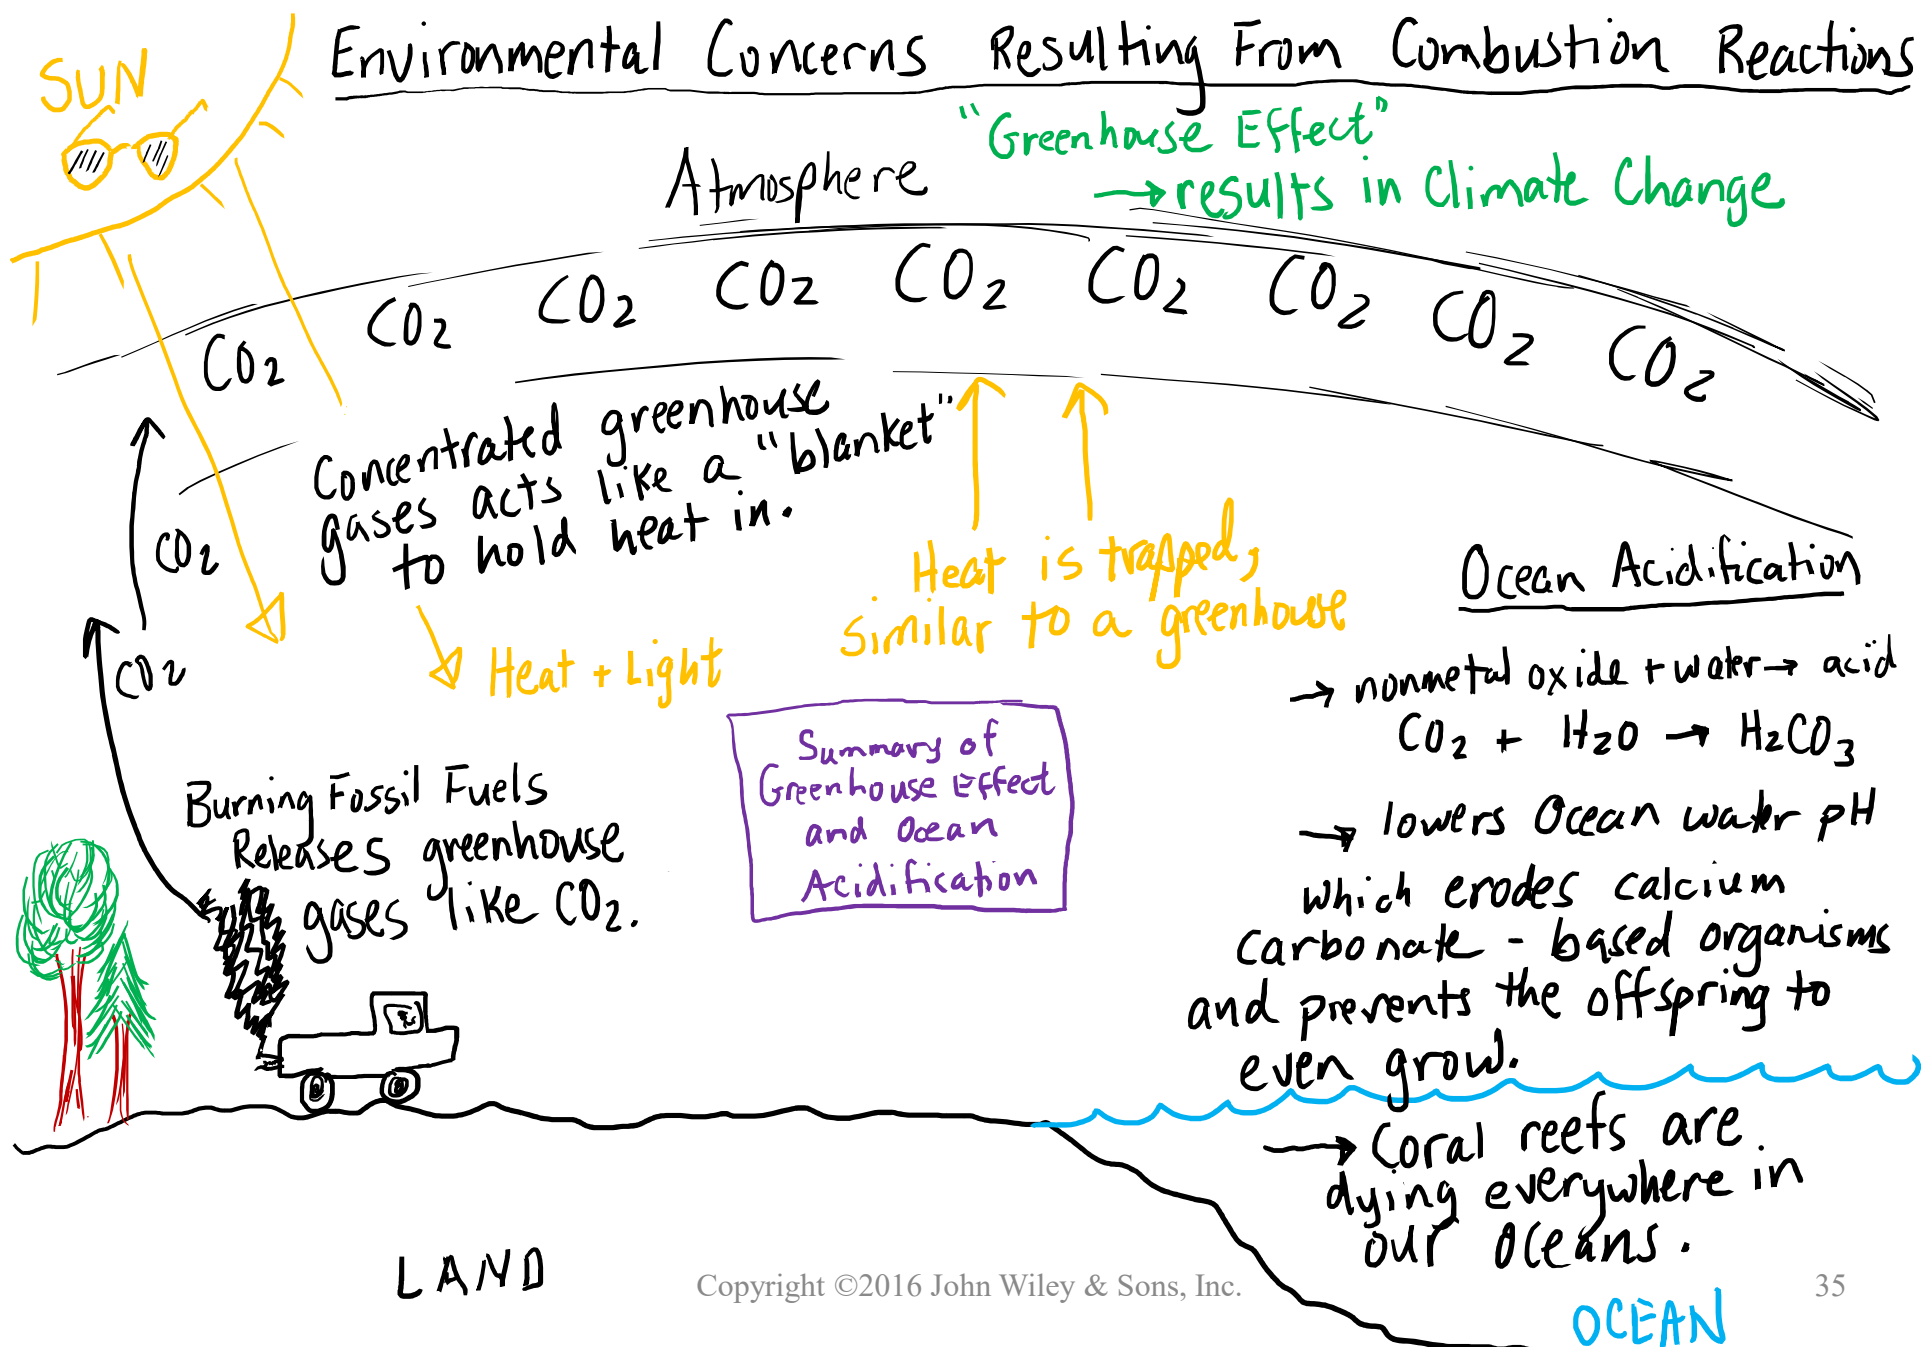 Environmental Concerns Resulting From Combustion Reactions
SUN
"Greenhouse Effect"
→ results in Climate Change
Atmosphere
CO2 CO2 CO2 CO2 CO2 CO2 CO2 CO2 CO2
Concentrated greenhouse
gases acts like a "blanket"
to hold heat in.
CO2
CO2
Heat + Light
Heat is trapped,
similar to a greenhouse
Burning Fossil Fuels
Releases greenhouse
gases like CO2.
Summary of
Greenhouse Effect
and Ocean
Acidification
Ocean Acidification
→ nonmetal oxide + water → acid
CO2 + H2O → H2CO3
→ lowers Ocean water pH
which erodes calcium
carbonate - based organisms
and prevents the offspring to
even grow.
→ Coral reefs are
dying everywhere in
our oceans.
LAND
Copyright ©2016 John Wiley & Sons, Inc.
35
OCEAN